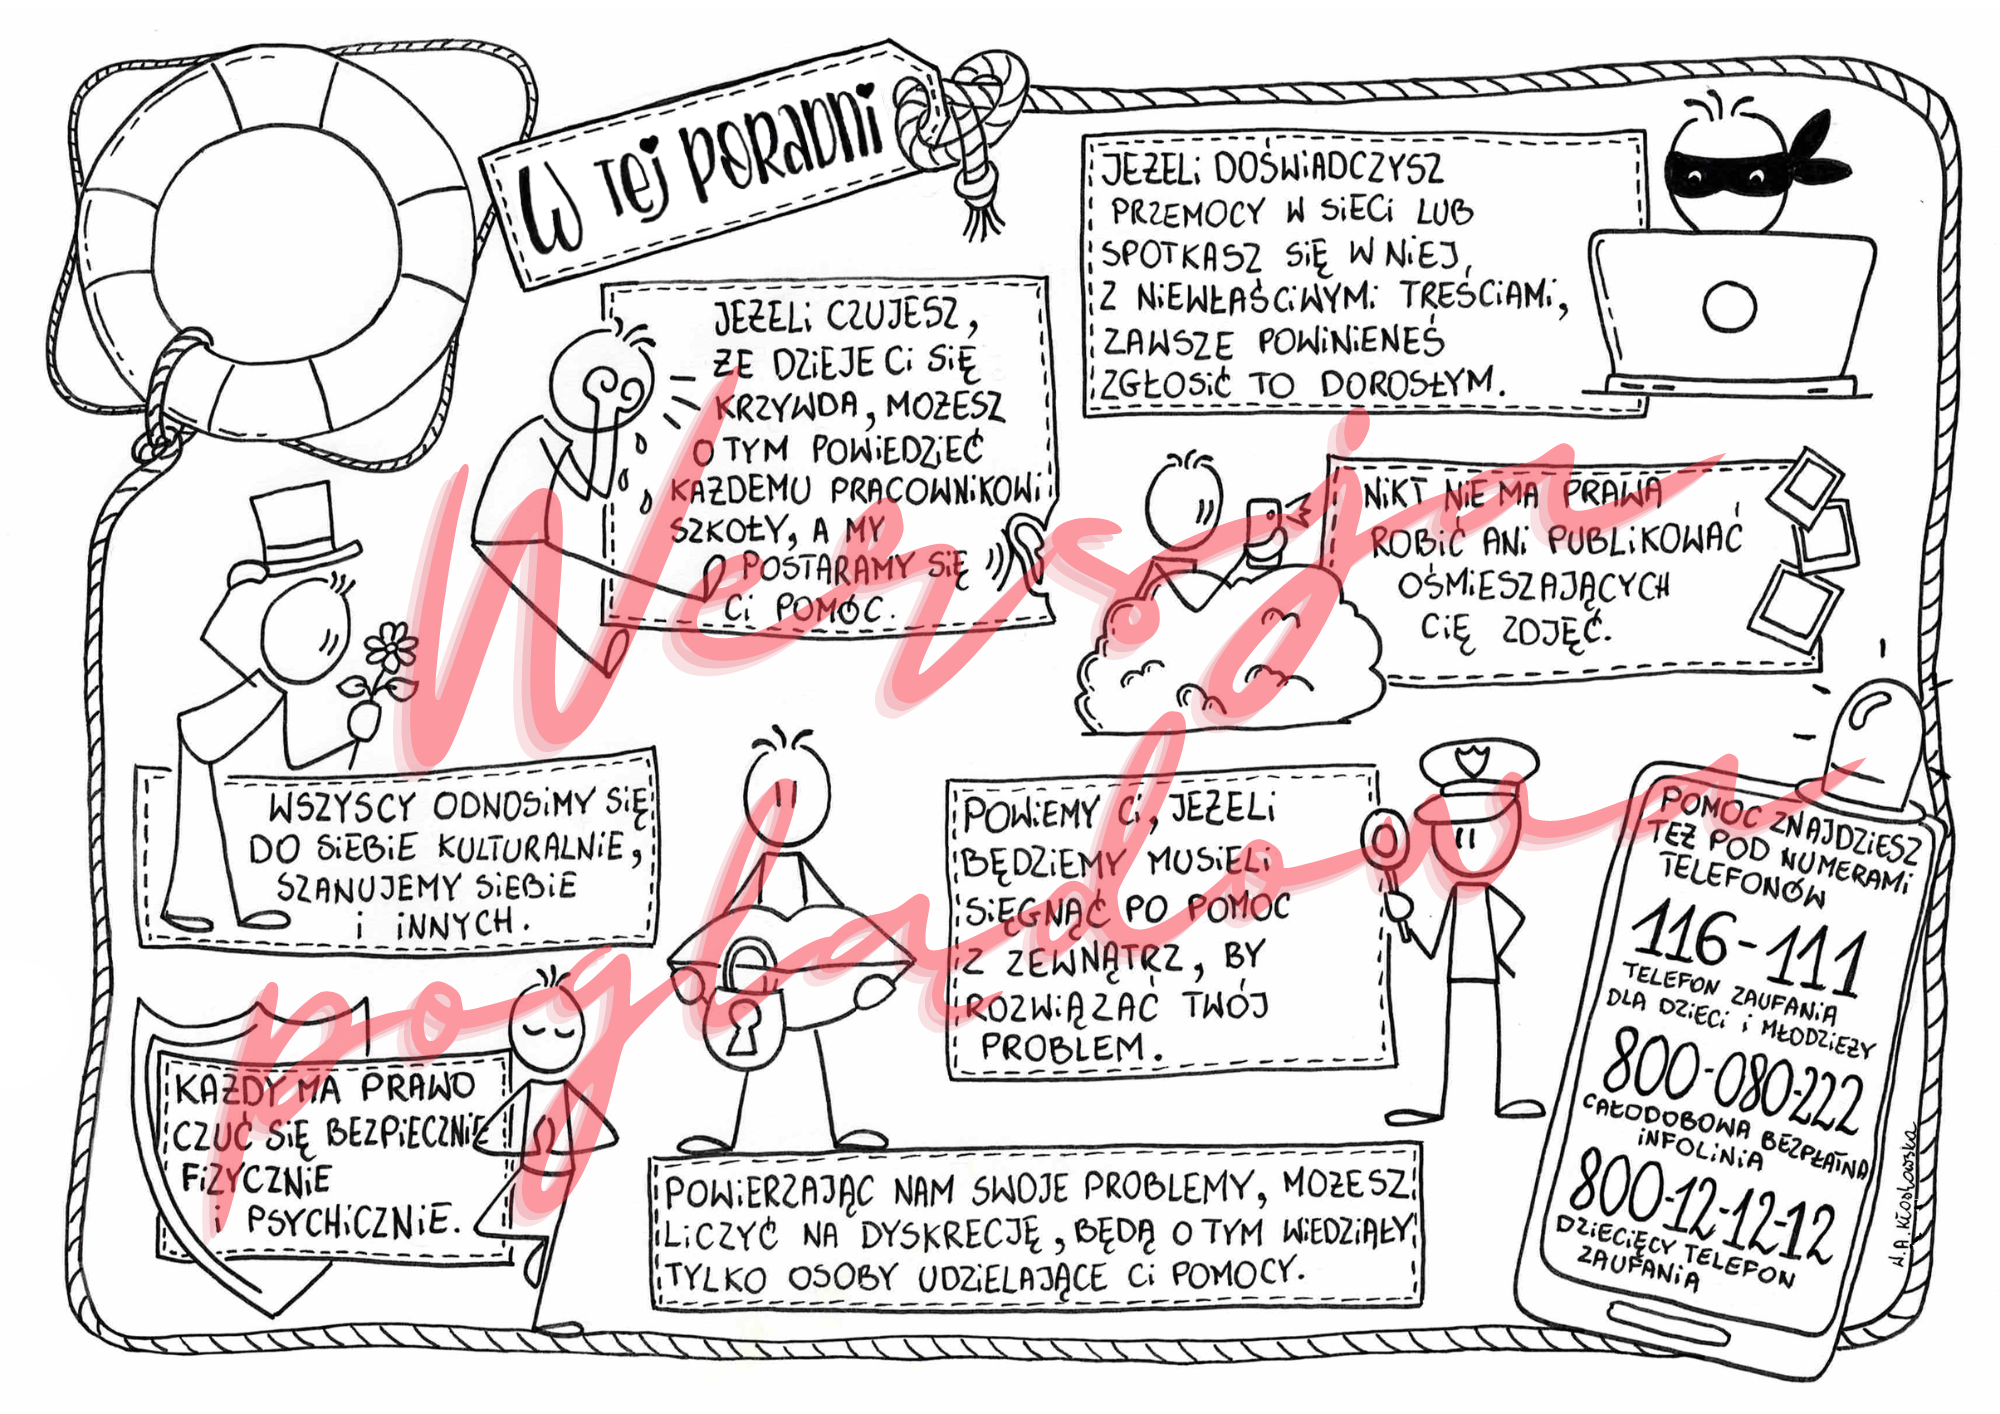 W TEJ PORADNI
JEŻELI CZUJESZ,
ŻE DZIEJE CI SIĘ
KRZYWDA, MOŻESZ
O TYM POWIEDZIEĆ
KAŻDEMU PRACOWNIKOWI
SZKOŁY, A MY
POSTARAMY SIĘ
CI POMÓC.
JEŻELI DOŚWIADCZYSZ
PRZEMOCY W SIECI LUB
SPOTKASZ SIĘ W NIEJ,
Z NIEWŁAŚCIWYMI TREŚCIAMI,
ZAWSZE POWINIENEŚ
ZGŁOSIĆ TO DOROSŁYM.
NIKT NIE MA PRAWA
ROBIĆ ANI PUBLIKOWAĆ
OŚMIESZAJĄCYCH
CIĘ ZDJĘĆ.
WSZYSCY ODNOSIMY SIĘ
DO SIEBIE KULTURALNIE,
SZANUJEMY SIEBIE
I INNYCH.
POWIEMY CI, JEŻELI
BĘDZIEMY MUSIELI
SIĘGNĄĆ PO POMOC
Z ZEWNĄTRZ, BY
ROZWIĄZAĆ TWÓJ
PROBLEM.
KAŻDY MA PRAWO
CZUĆ SIĘ BEZPIECZNIE
FIZYCZNIE
I PSYCHICZNIE.
POWIERZAJĄC NAM SWOJE PROBLEMY, MOŻESZ
LICZYĆ NA DYSKRECJĘ, BĘDĄ O TYM WIEDZIAŁY
TYLKO OSOBY UDZIELAJĄCE CI POMOCY.
POMOC ZNAJDZIESZ
TEŻ POD NUMERAMI
TELEFONÓW
116-111
TELEFON ZAUFANIA
DLA DZIECI I MŁODZIEŻY
800-080-222
CAŁODOBOWA BEZPŁATNA
INFOLINIA
800-12-12-12
DZIECIĘCY TELEFON
ZAUFANIA
W.A.Kłosowska
Wersja
poglądowa